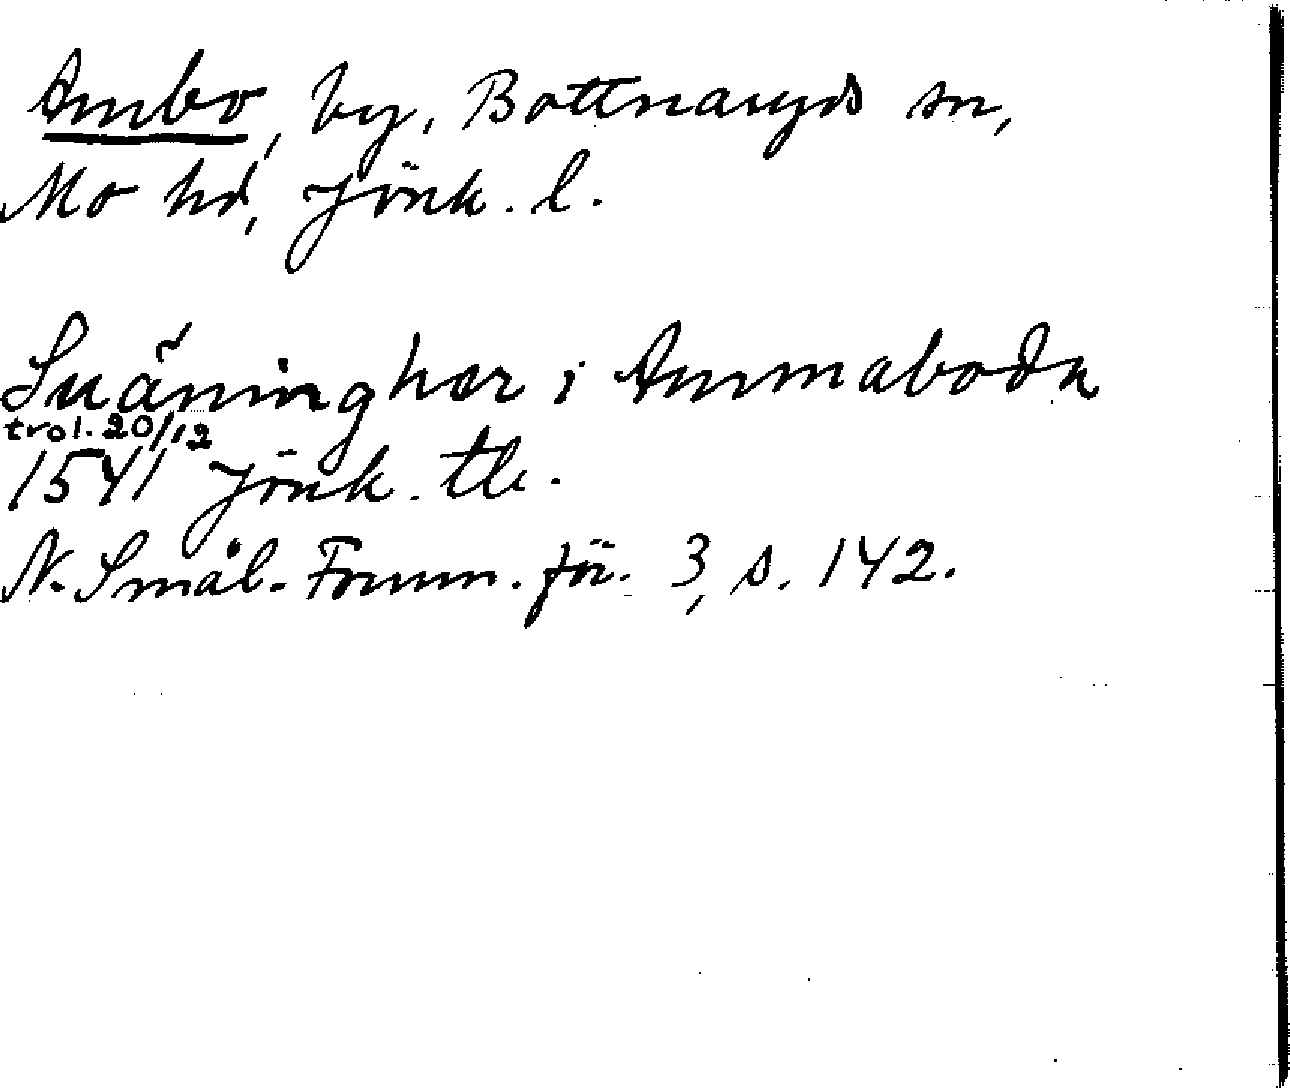 Ambo, by, Bottnaryds sn,
Mo hd, Jönk. l.
Suäningher i Ammabodh
trol. 20/12
1541 Jönk. tb.
N. Smål. Fornm. för. 3, s. 142.